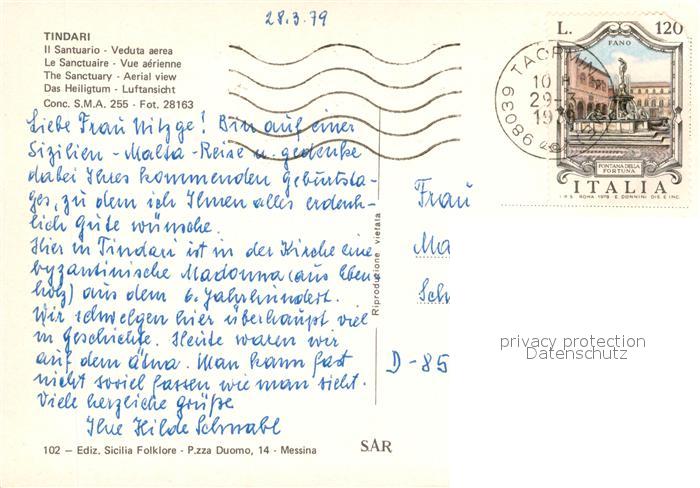 28.3.79
TINDARI
Il Santuario - Veduta aerea
Le Sanctuaire - Vue aérienne
The Sanctuary - Aerial view
Das Heiligtum - Luftansicht
Conc. S.M.A. 255 - Fot. 28163
Liebe Frau Nitzge! Bin auf einer
Sizilien - Malta - Reise u. gedenke
dabei Ihres kommenden Geburtsta-
ges, zu dem ich Ihnen alles erdenk-
lich Gute wünsche.
Hier in Tindari ist in der Kirche eine
byzantinische Madonna (aus Eben
holz) aus dem 6. Jahrhundert.
Wir schwelgen hier überhaupt viel
in Geschichte. Heute waren wir
auf dem Ätna. Man kann fast
nicht soviel fassen wie man sieht.
Viele herzliche Grüße
Ihre Hilde Schwabl
102 - Ediz. Sicilia Folklore - P.zza Duomo, 14 - Messina
SAR
Riproduzione vietata
L. 120
FANO
FONTANA DELLA
FORTUNA
ITALIA
I.P.S. ROMA 1978 E. DONNINI DIS. E INC.
98039 TAORMINA
10
29
19
Frau
Ma
Sch
D-85
privacy protection
Datenschutz